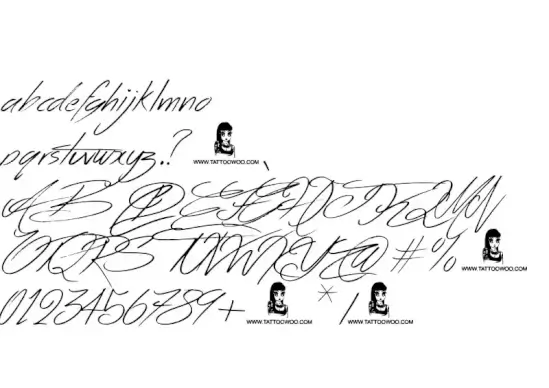 abcdefghijklmno
pqrstuvwxyz.?
WWW.TATTOOWOO.COM
ABCDEFGHIJKLMN
OPQRSTUVWXYZ@#%
WWW.TATTOOWOO.COM
0123456789+
WWW.TATTOOWOO.COM
* /
WWW.TATTOOWOO.COM